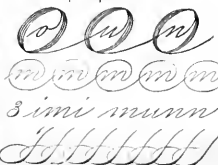 o u n
m m m m m
3 imi munn